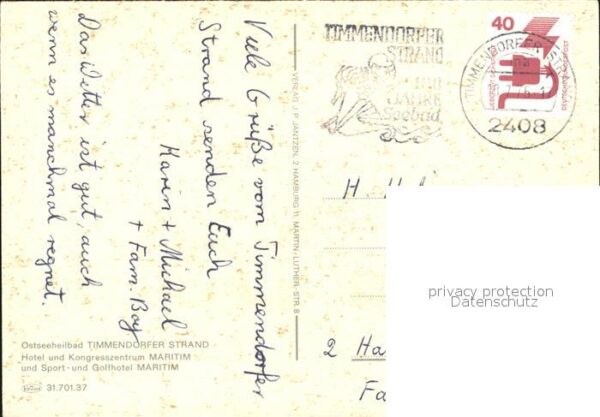 Viele Grüße vom Timmendorfer
Strand senden Euch
Karin + Michael
+ Fam. Bay
Das Wetter ist gut, auch
wenn es manchmal regnet.
Ostseeheilbad TIMMENDORFER STRAND
Hotel und Kongresszentrum MARITIM
und Sport- und Golfhotel MARITIM
31.701.37
VERLAG J. P. JANTZEN, 2 HAMBURG 11, MARTIN-LUTHER-STR. 8
TIMMENDORFER
STRAND
JAHRE
Seebad
40
TIMMENDORFER
2408
H.
2 Ha
Fa
privacy protection
Datenschutz